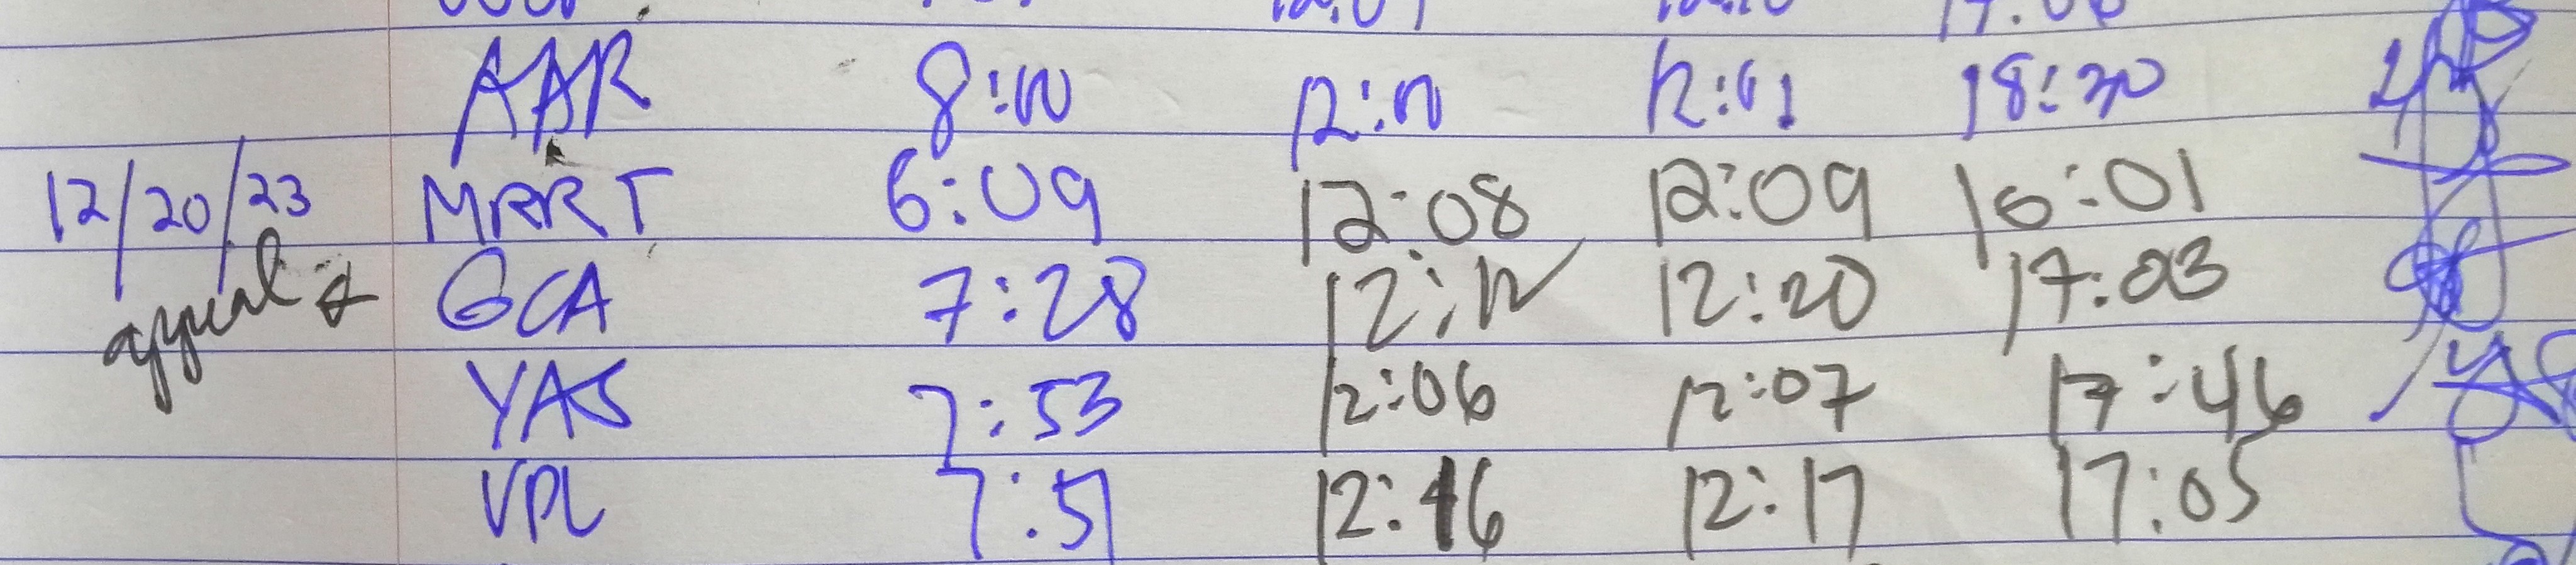 AAR 8:00 12:00 12:01 18:30
12/20/23 MRRT 6:09 12:08 12:09 16:01
GCA 7:28 12:12 12:20 17:03
YAS 7:53 12:06 12:07 17:46
VPL 7:51 12:16 12:17 17:05